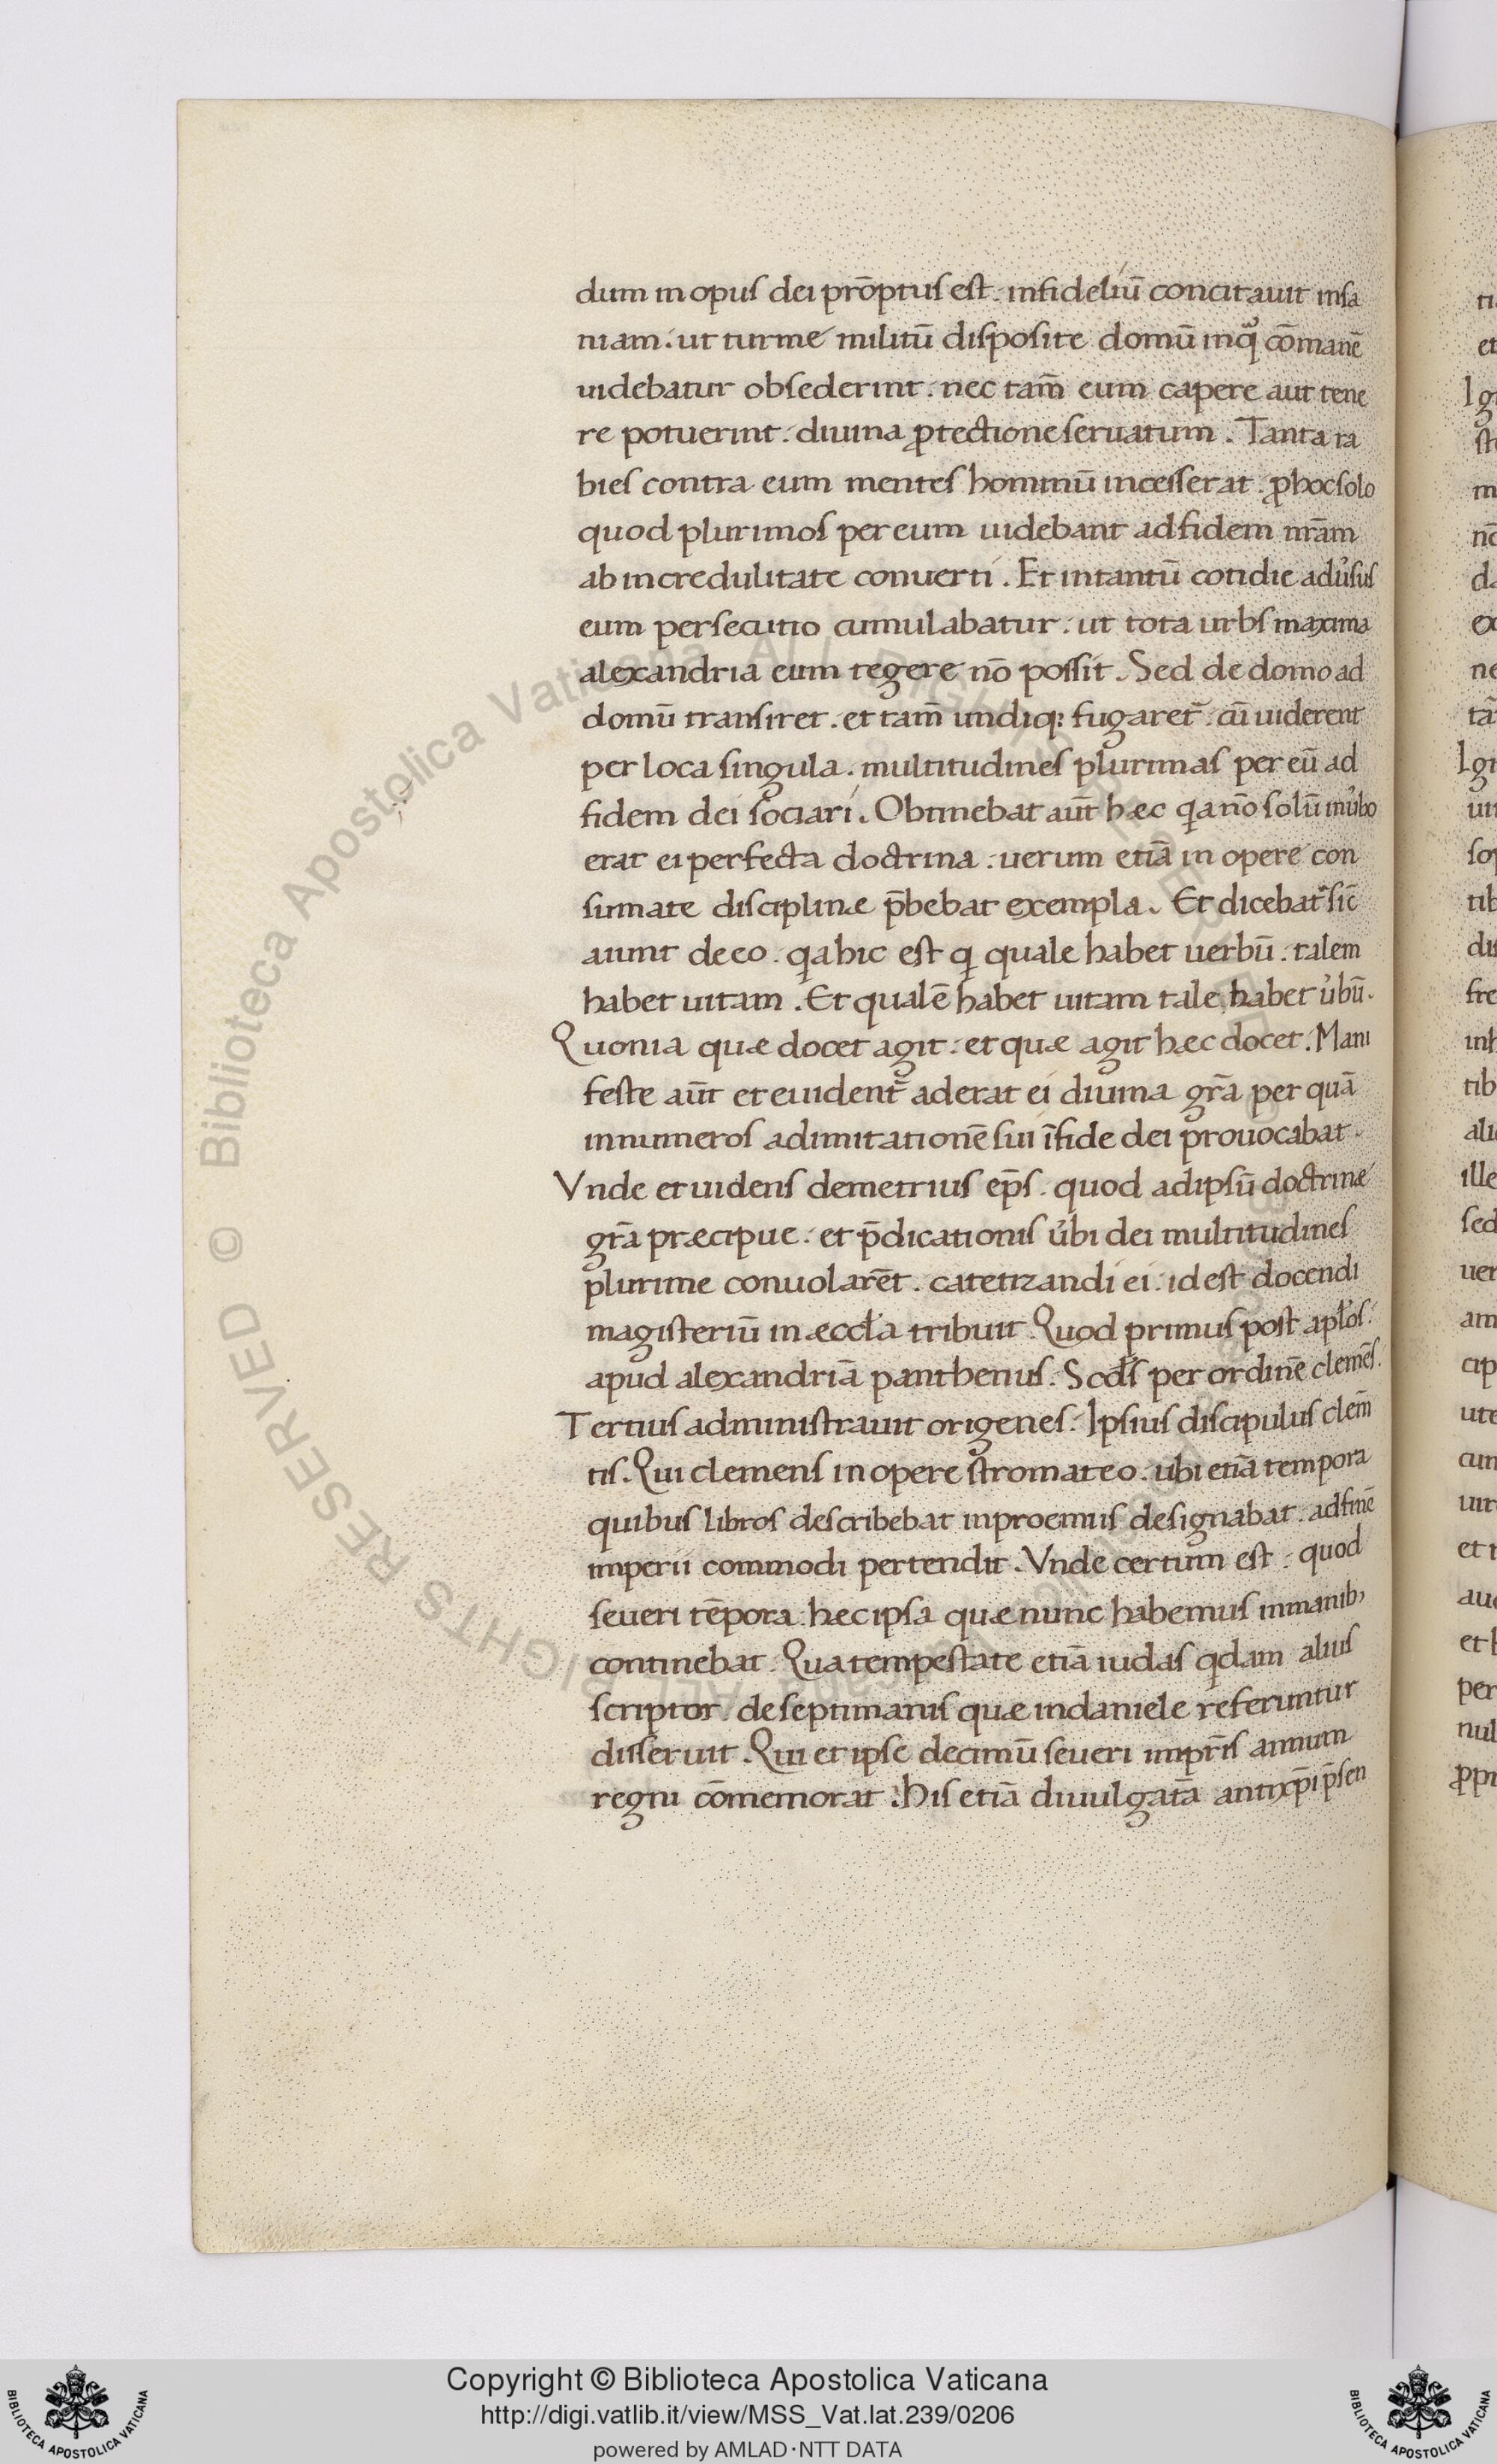 dum in opus dei prōptus est. infideliū concitauit insa
niam. ut turme militū disposite domū inqͣ cōmanē
uidebatur obsederint. nec tam̄ eum capere aut tene
re potuerint. diuina ꝓtectione seruatum. Tanta ra
bies contra eum mentes hominū incesserat. ꝓ hoc solo
quod plurimos per eum uidebant ad fidem nr̄am
ab incredulitate conuerti. Et intantū cotidie adu̓sus
eum persecutio cumulabatur. ut tota urbs maxima
alexandria eum tegere nō possit. Sed de domo ad
domū transiret. et tam̄ undiq; fugaret̄. cū uiderent
per loca singula. multitudines plurimas per eū ad
fidem dei sociari. Obtinebat aūt hæc qa nō solū inu̓bo
erat ei perfecta doctrina. uerum etiā in opere con
sumate disciplinæ p̄bebat exempla. Et dicebat̄ sic̄
aiunt de eo. qa hic est q quale habet uerbū. talem
habet uitam. Et qualē habet uitam tale habet u̓bū.
Quonia quæ docet agit. et quæ agit hæc docet. Mani
feste aūt et euident̄ aderat ei diuina gr̄a per quā
innumeros ad imitationē sui īfide dei prouocabat.
Vnde et uidens demetrius ep̄s. quod adipsū doctrinæ
gr̄a præcipue. et p̄dicationis u̓bi dei multitudines
plurime conuolarēt. catetizandi ei. id est docendi
magisteriū in æccl̄a tribuit. Quod primus post apl̓os.
apud alexandriā panthenus. Scd̄s per ordinē clemēs.
Tertius administrauit origenes. Ipsius discipulus clem̄
tis. Qui clemens in opere stromateo. ubi etiā tempora
quibus libros describebat in proemiis designabat. ad finē
imperii commodi pertendit. Vnde certum est. quod
seueri tēpora. hæc ipsa quæ nunc habemus inmanib;
continebat. Qua tempestate etiā iudas qdam alius
scriptor. de septimanis quæ indaniele referuntur
disseruit. Qui et ipse decimū seueri impr̄is annum
regni cōmemorat. His etiā diuulgatā antixp̄i p̄sen
Copyright © Biblioteca Apostolica Vaticana
http://digi.vatlib.it/view/MSS_Vat.lat.239/0206
powered by AMLAD·NTT DATA